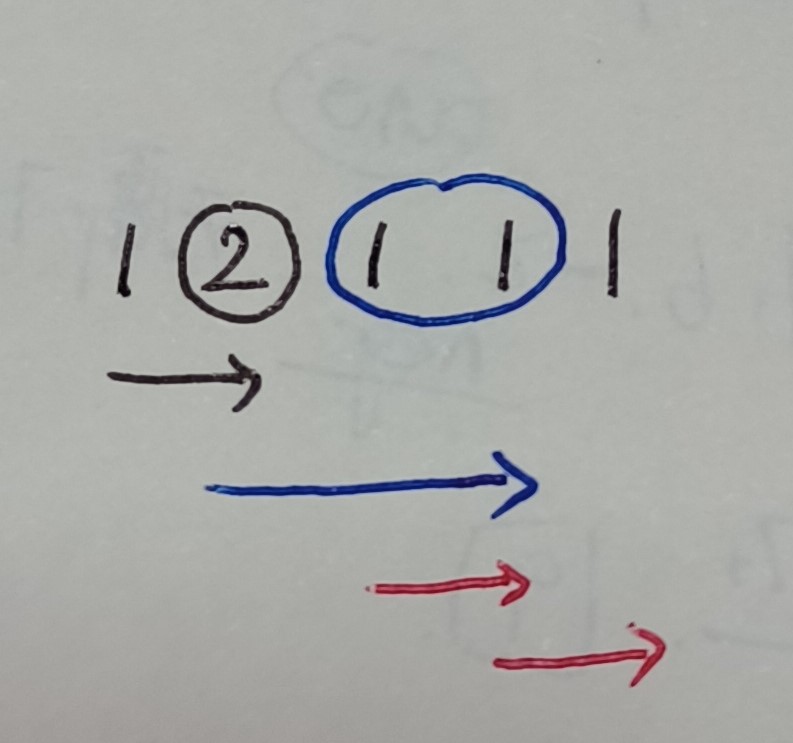 1 2 1 1 1